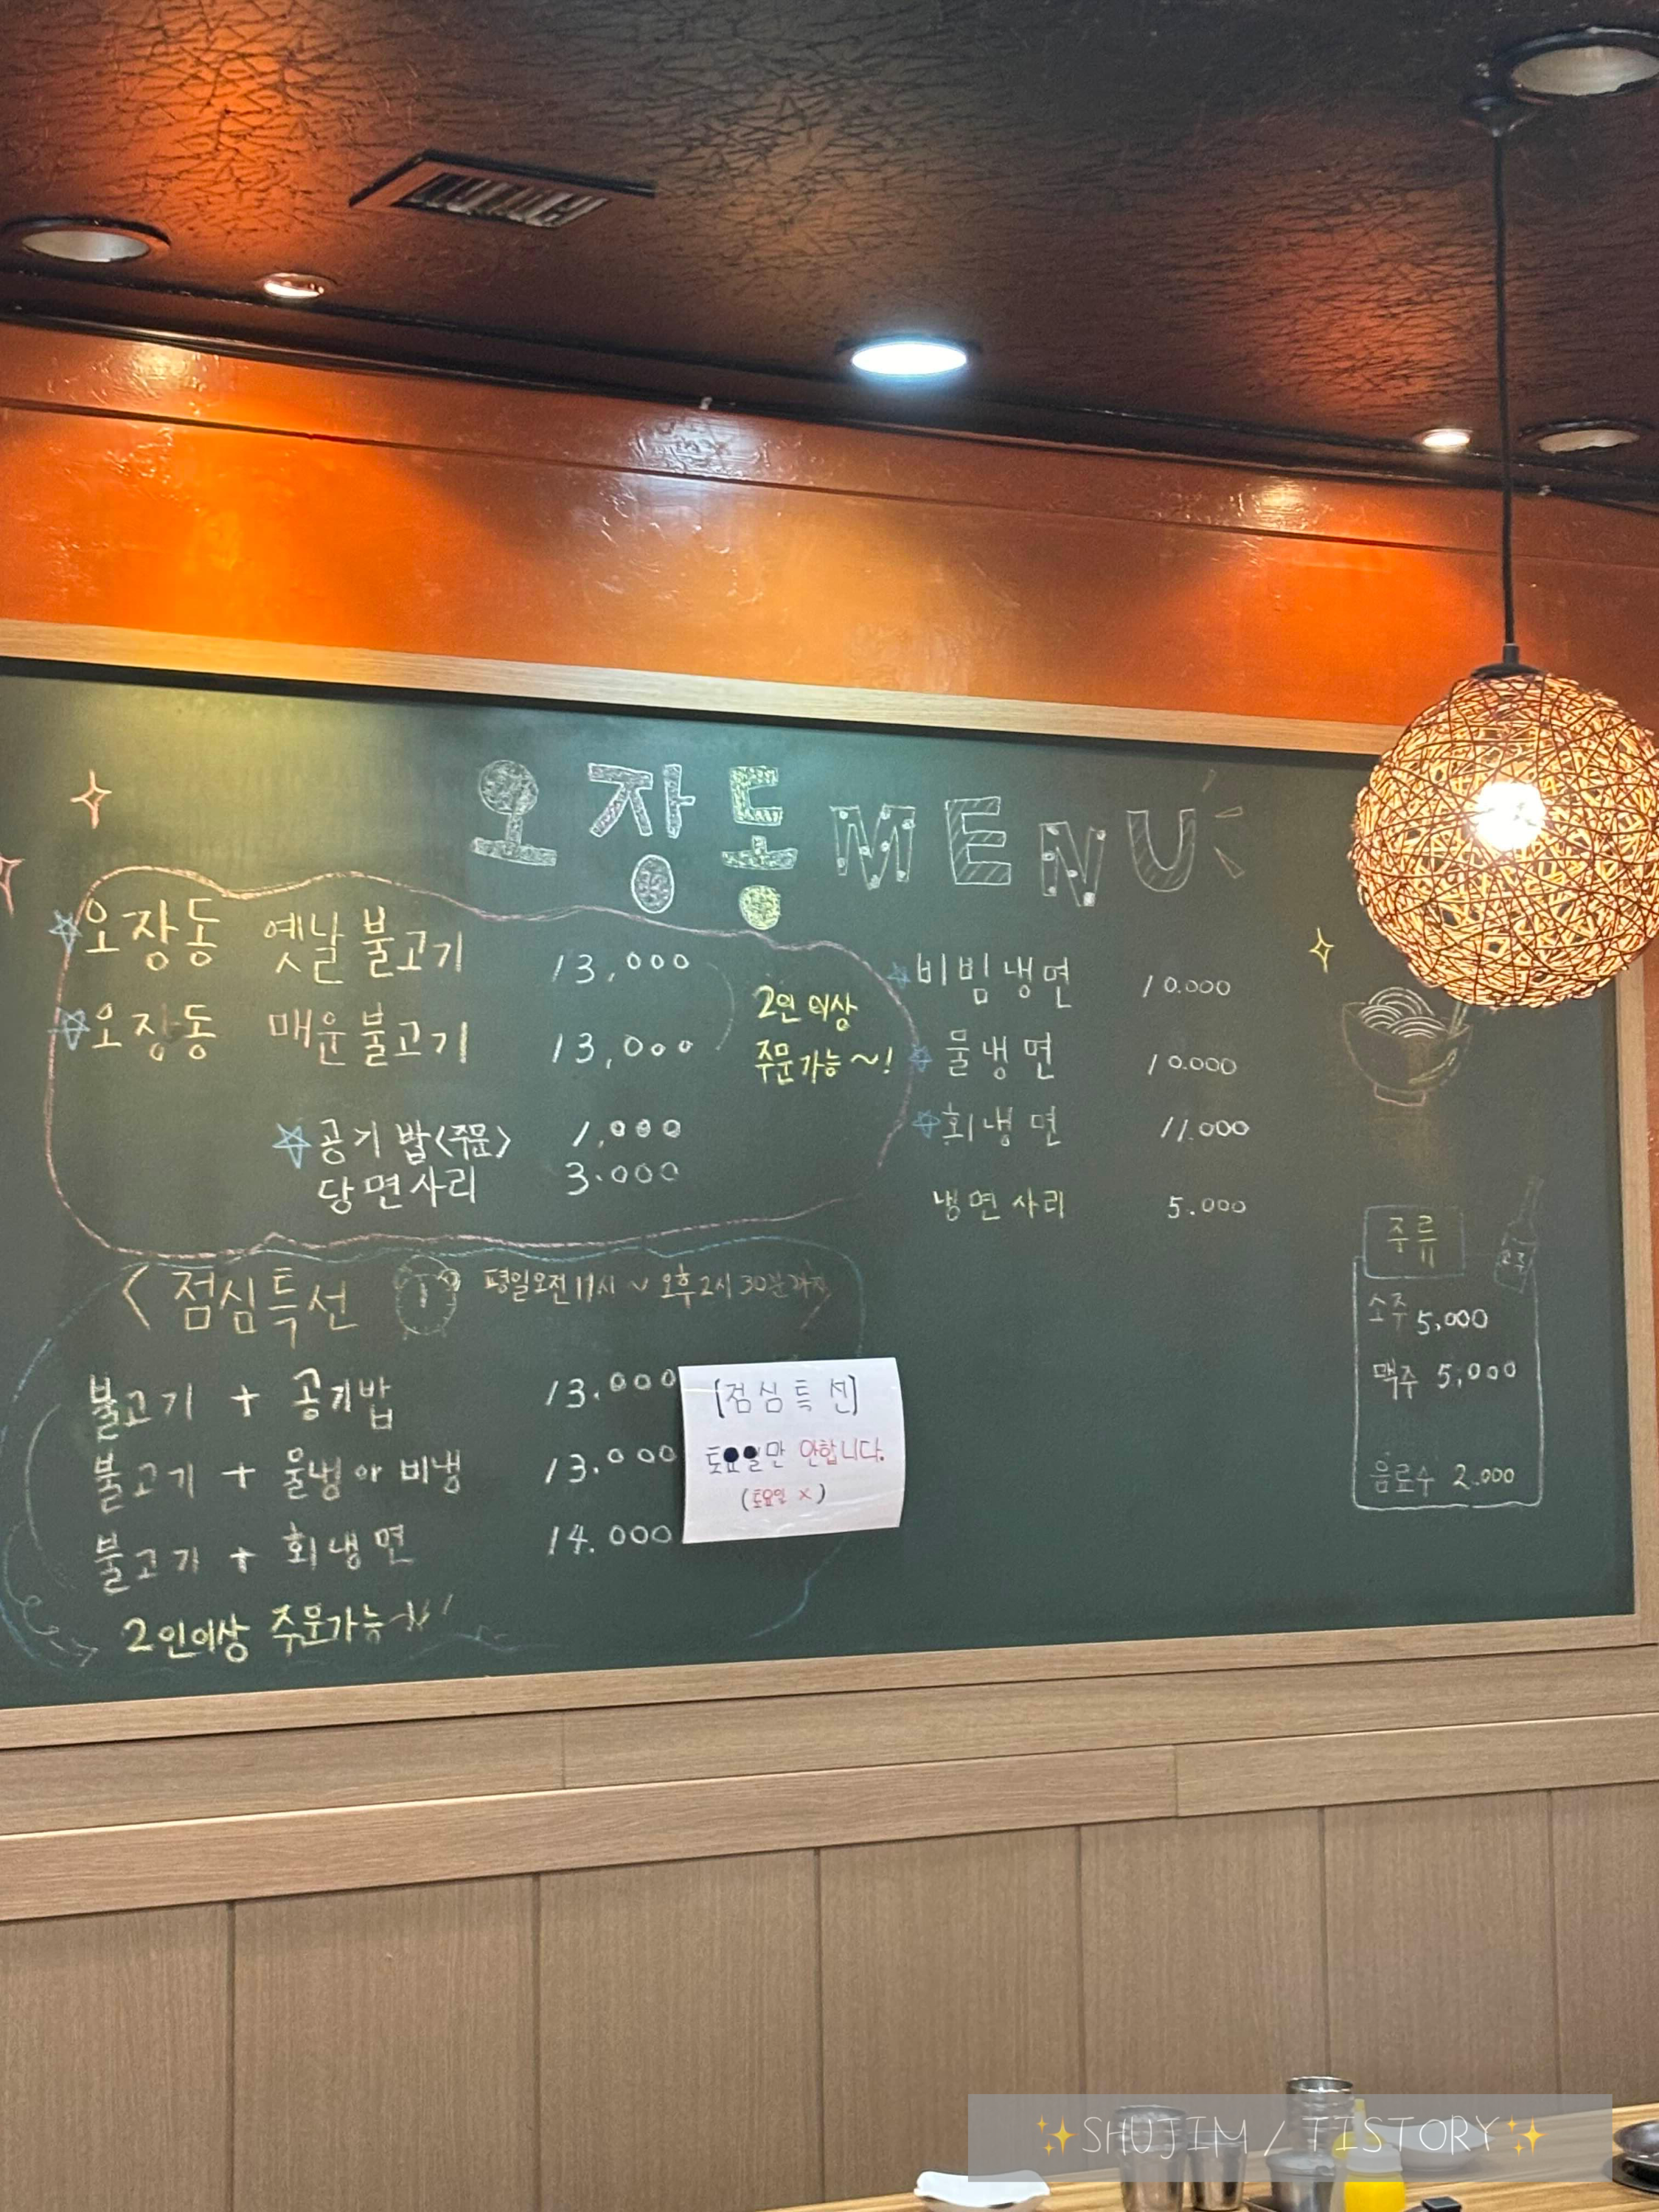 오장동 MENU
오장동 옛날불고기 13,000
오장동 매운불고기 13,000
2인 이상
주문가능~!
공기밥<주문> 1,000
당면사리 3.000
비빔냉면 10.000
물냉면 10.000
회냉면 11.000
냉면사리 5.000
<점심특선 평일오전11시~오후2시30분까지>
불고기 + 공기밥 13.000
불고기 + 물냉 or 비냉 13.000
불고기 + 회냉면 14.000
2인이상 주문가능
[점심특선]
토요일만 안합니다.
(토요일 x)
주류
소주
소주 5,000
맥주 5,000
음료수 2.000
✨SHUJIM / TISTORY✨